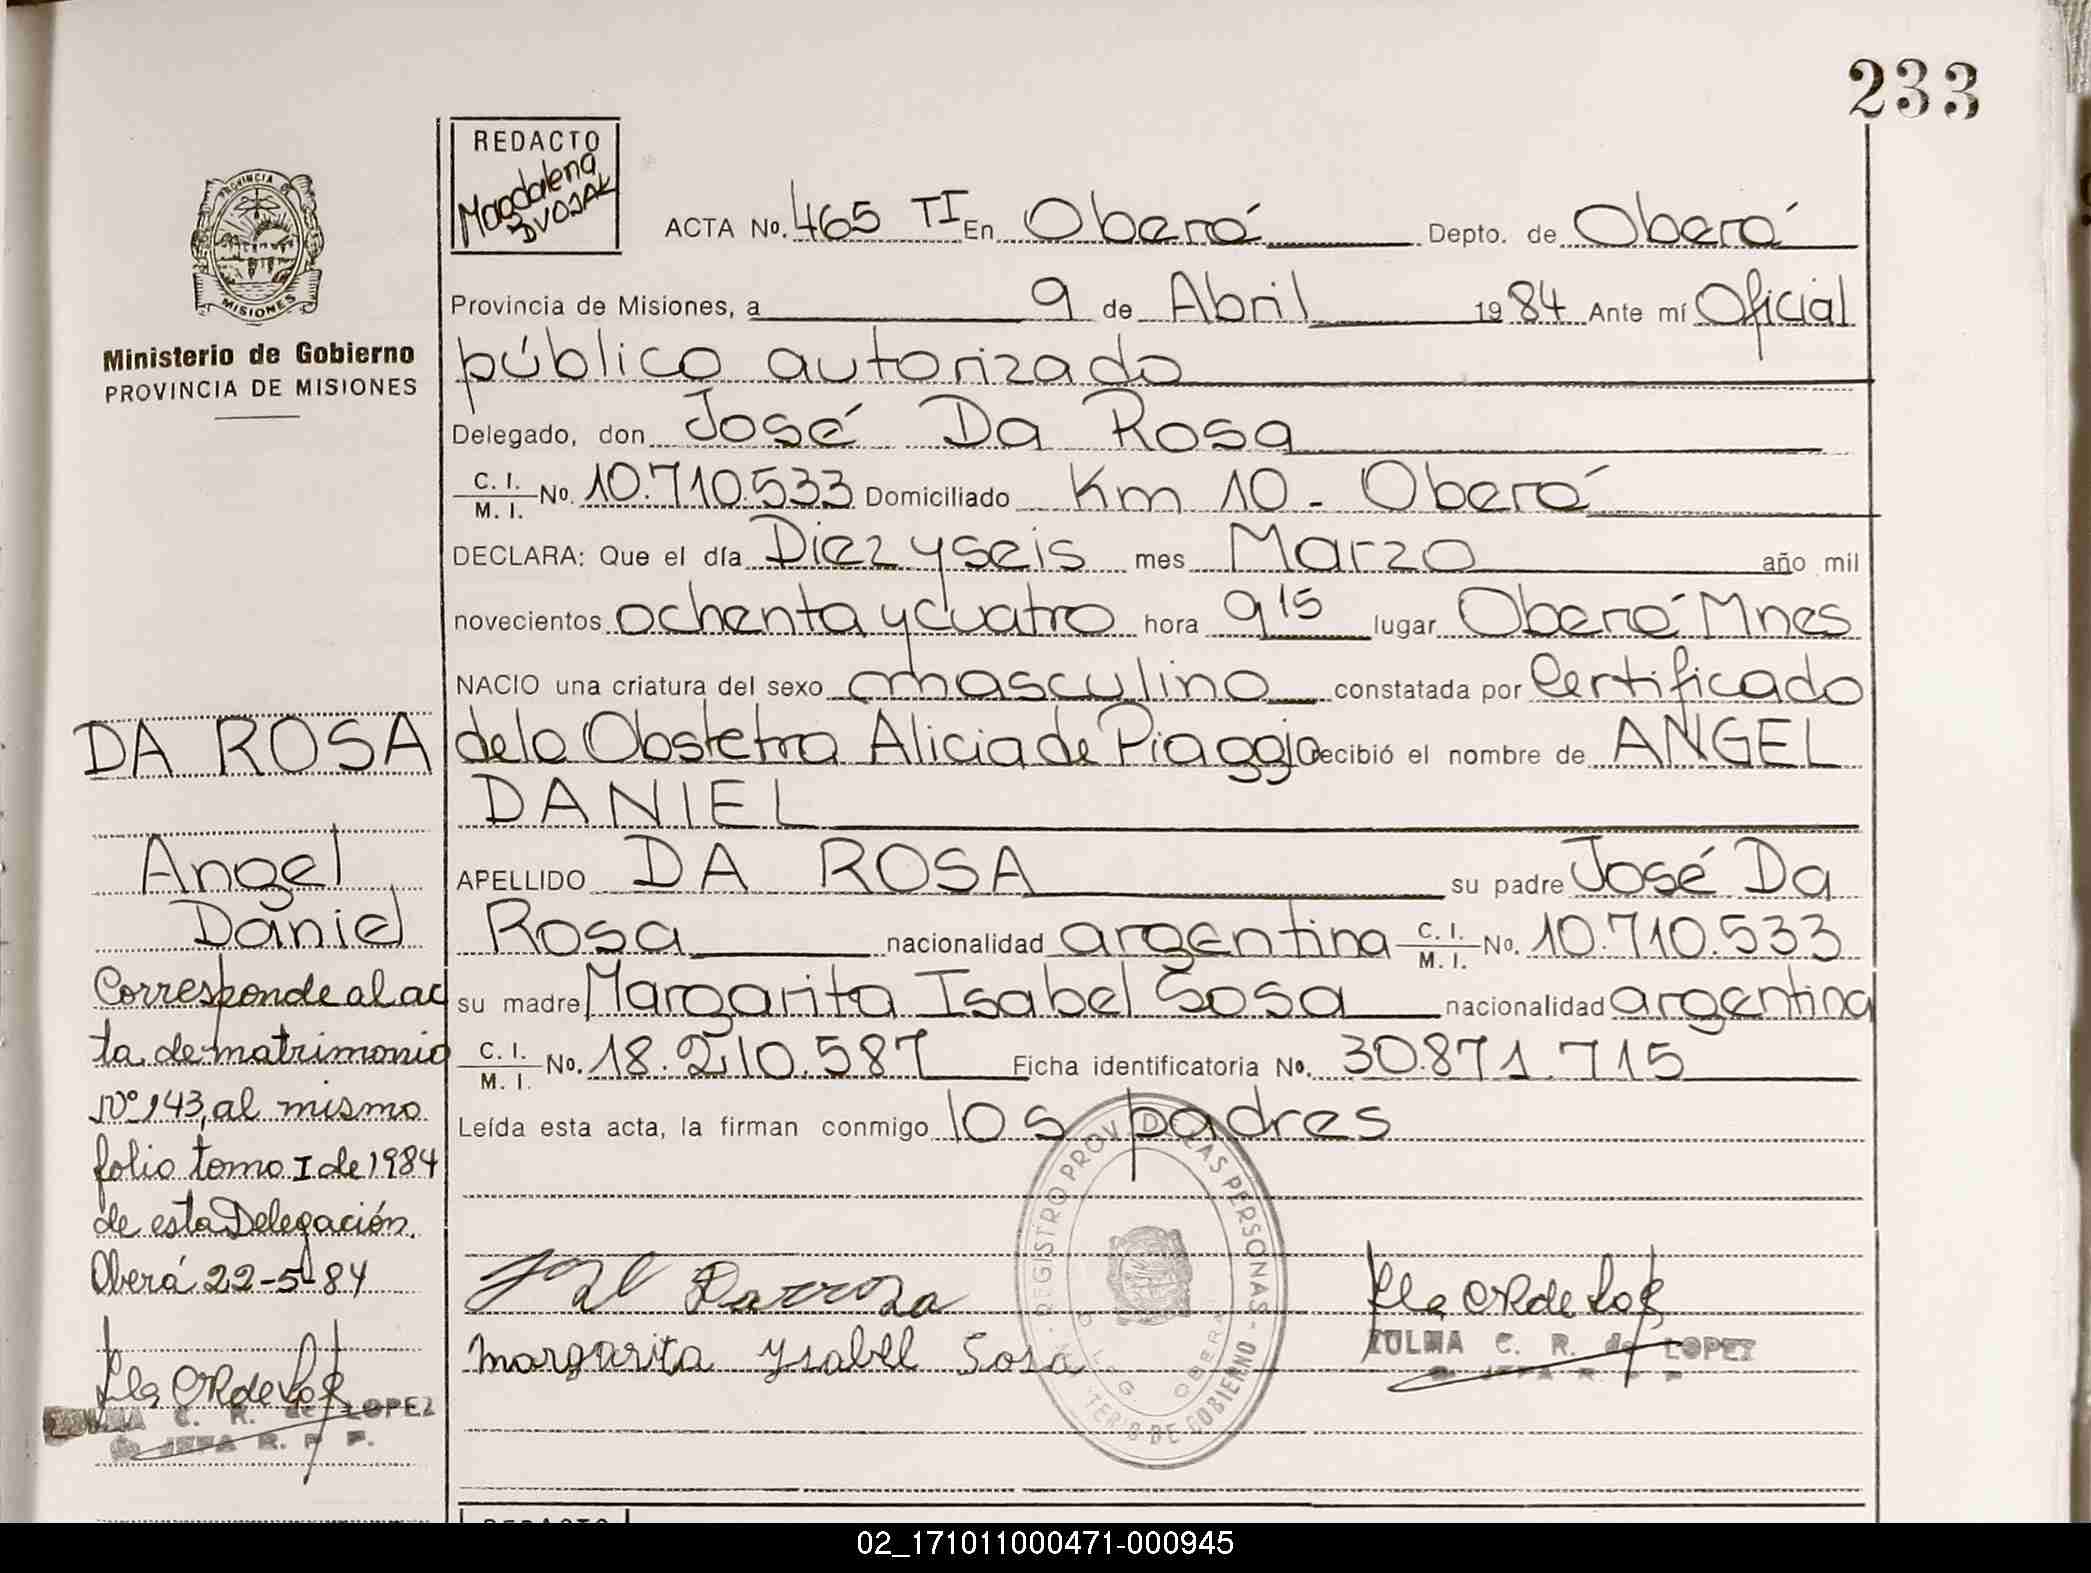 233
REDACTO
Magdalena
DVOJAK
PROVINCIA DE
MISIONES
Ministerio de Gobierno
PROVINCIA DE MISIONES
ACTA No. 465 TI En Oberá Depto. de Oberá
Provincia de Misiones, a 9 de Abril 1984 Ante mí Oficial
público autorizado
Delegado, don José Da Rosa
C. I. / M. I. No. 10.710.533 Domiciliado Km 10 - Oberá
DECLARA: Que el día Diez y seis mes Marzo año mil
novecientos ochenta y cuatro hora 9 15 lugar Oberá Mnes
NACIO una criatura del sexo masculino constatada por Certificado
de la Obstetra Alicia de Piaggio recibió el nombre de ANGEL
DANIEL
APELLIDO DA ROSA su padre José Da
Rosa nacionalidad argentina C. I. / M. I. No. 10.710.533
su madre Margarita Isabel Sosa nacionalidad argentina
C. I. / M. I. No. 18.210.587 Ficha identificatoria No. 30.871.715
Leída esta acta, la firman conmigo los padres
DA ROSA
Angel
Daniel
Corresponde al ac
ta de matrimonio
Nº 143, al mismo
folio tomo I de 1984
de esta Delegación.
Oberá 22-5-84
ZULMA C. R. de LOPEZ
JEFA R. P. P.
José Darroza
Margarita Ysabel Sosa
REGISTRO PROV. DE LAS PERSONAS
MINISTERIO DE GOBIERNO
OBERA
ZULMA C. R. de LOPEZ
JEFA R. P. P.
REDACTO
02_171011000471-000945